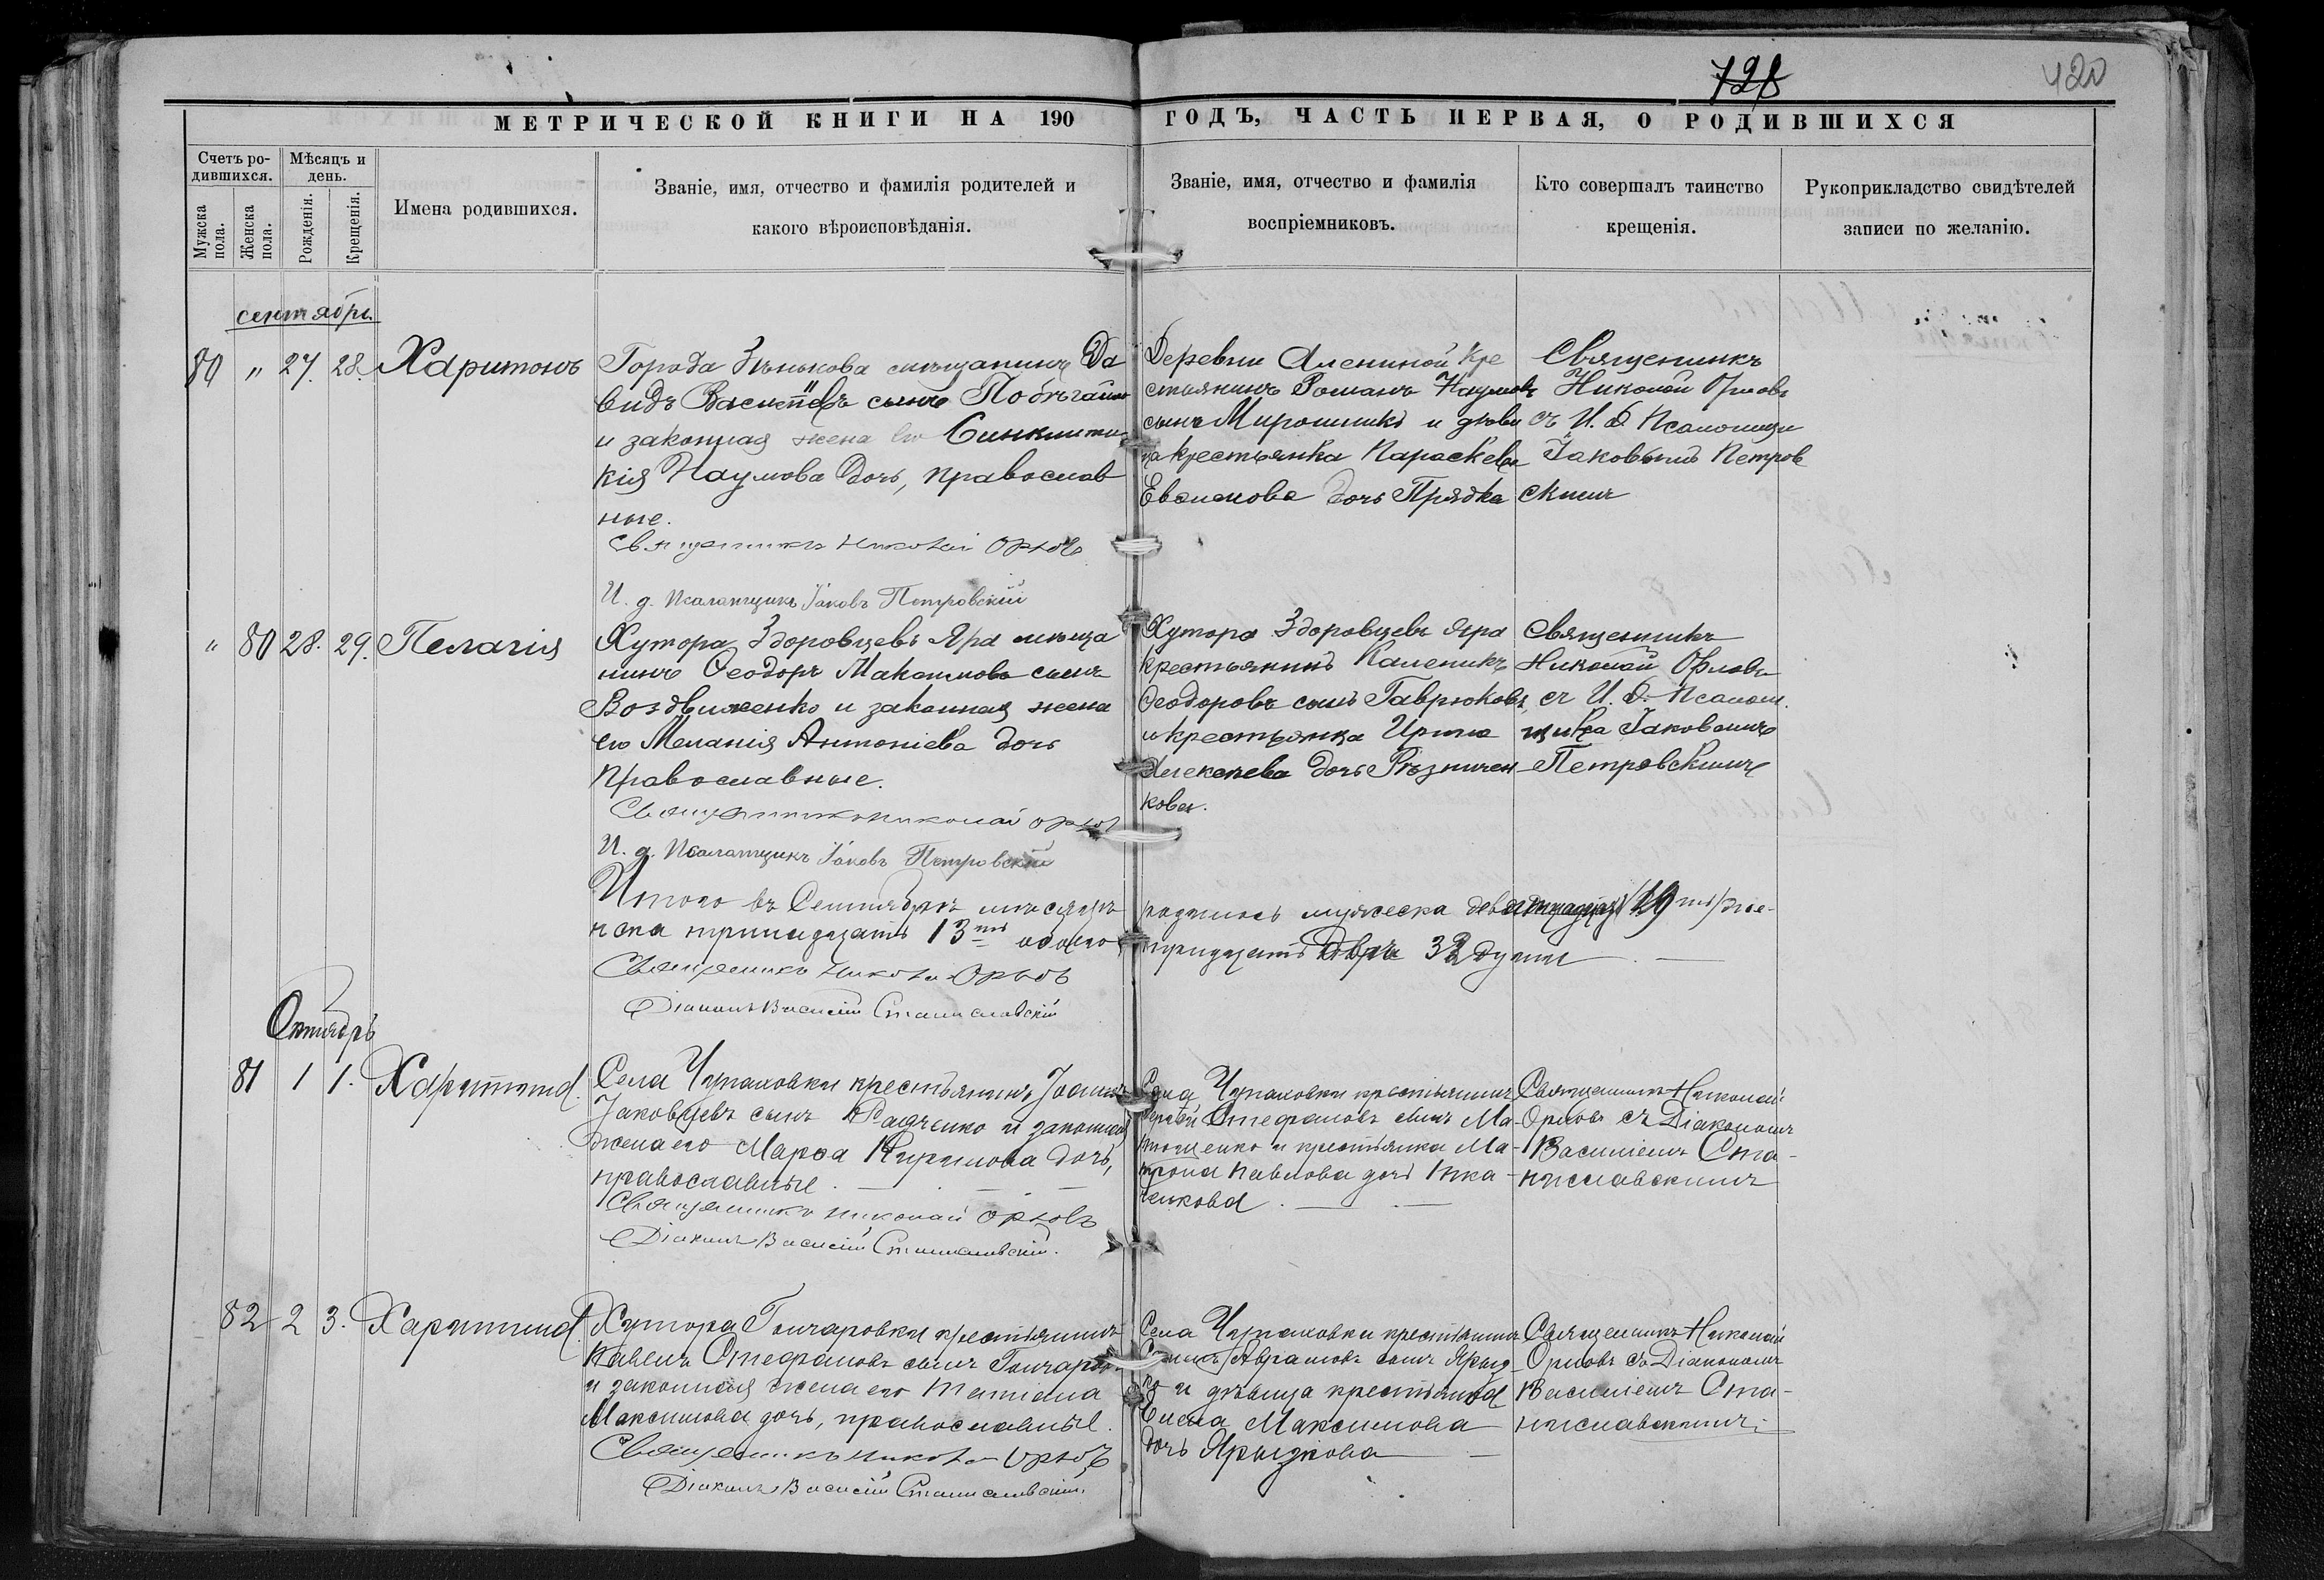 728
420
МЕТРИЧЕСКОЙ КНИГИ НА 190 ГОДЪ, ЧАСТЬ ПЕРВАЯ, О РОДИВШИХСЯ
Счетъ ро-
дившихся.
Мужска пола.
Женска пола.
Мѣсяцъ и
день.
Рожденія.
Крещенія.
Имена родившихся.
Званіе, имя, отчество и фамилія родителей и
какого вѣроисповѣданія.
Званіе, имя, отчество и фамилія
воспріемниковъ.
Кто совершалъ таинство
крещенія.
Рукоприкладство свидѣтелей
записи по желанію.
сентябрь
80 " 27. 28. Харитонъ
Города Зѣнькова мѣщанинъ Да
видъ сынъ
и законная жена его Синклити
кія Наумова дочь, православ
ные.
Священникъ Николай Орловъ
И. д. Псаломщикъ Іаковъ Петровскій
Деревни Алениной кре
стьянинъ Романъ Наумовъ
сынъ Мирошникъ и дѣви
ца крестьянка Параскева
дочь Прядка
Священникъ
Николай Орловъ
съ И. д. Псаломщи
Іаковымъ Петров
скимъ
" 80 28. 29. Пелагія
Хутора Здоровцевъ Яра мѣща
нинъ Ѳеодоръ Максимовъ сынъ
Воздвиженко и законная жена
его Меланія Антоніева дочь
Православные.
Священникъ Николай Орлов
И. д. Псаломщикъ Іаковъ Петровскій
Хутора Здоровцевъ Яра
крестьянинъ Каленикъ
Ѳеодоровъ сынъ Гаврюковъ,
и крестьянка Ирина
Алексѣева дочь Рѣзничен
кова.
Священникъ
Николай Орловъ
съ И. д. Псалом.
щика Іаковомъ
Петровскимъ
Итого въ Сентябрѣ мѣсяцѣ родилось мужеска девятнадцать /19ть/ же-
нска тринадцать 13ть обоего тридцать двѣ 32 души
Священникъ Николай Орловъ
Діаконъ Василій Станиславскій
Октябрь
81 1 1. Харитина.
Села Чупаховки крестьянинъ Іоаннъ
Іаковлевъ сынъ Радченко и законная
жена его Марѳа Кирилова дочь,
православные.
Священникъ Николай Орловъ
Діаконъ Василій Станиславскій.
Села Чупаховки крестьянинъ
Стефановъ сынъ Ма-
тющенко и крестьянка Ма-
трона Павлова дочь Тка-
ченкова.
Священникъ Николай
Орловъ съ Діакономъ
Василіемъ Ста-
ниславскимъ
82 2 3. Харитина.
Хутора Гончаровки крестьянинъ
Павелъ Стефановъ сынъ
и законная жена его Татіана
Максимова дочь, православные.
Священникъ Николай Орловъ
Діаконъ Василій Станиславскій.
Села Чупаховки крестьянинъ
Аврамовъ сынъ Ярыз
ко и дѣвица крестьянка
Елена Максимова
дочь Ярызкова
Священникъ Николай
Орловъ съ Діакономъ
Василіемъ Ста-
ниславскимъ.